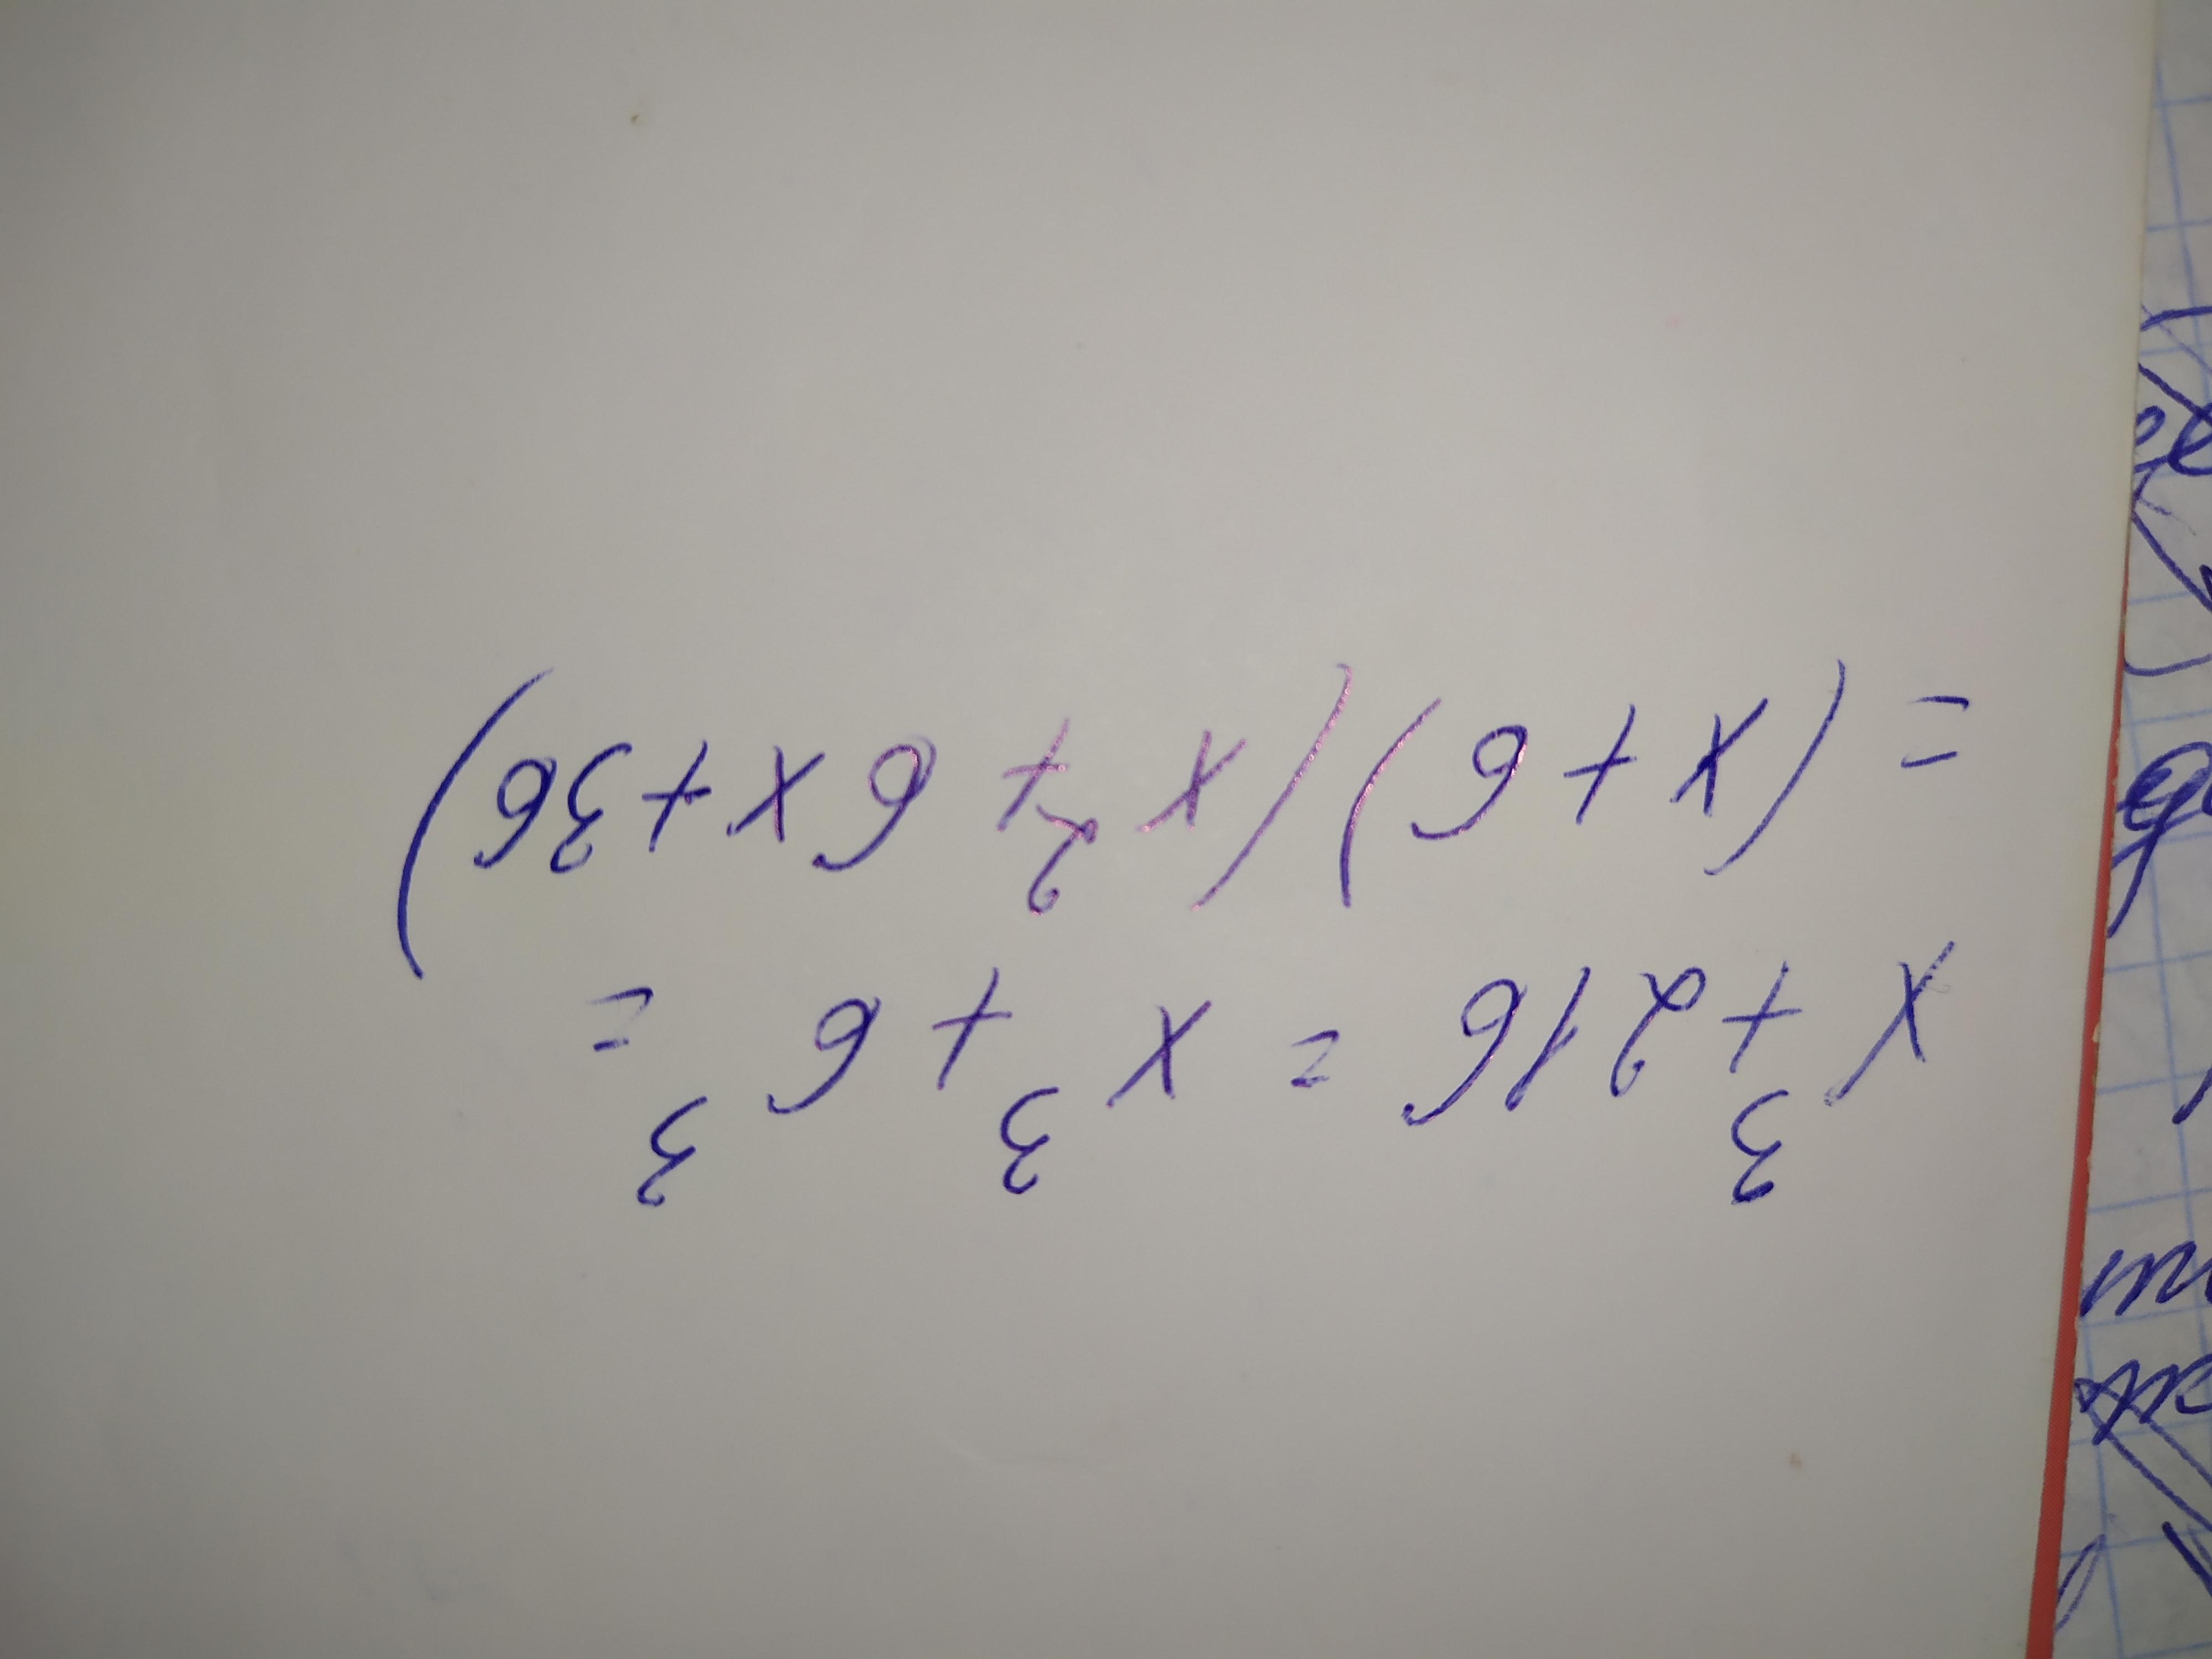 x³ + 216 = x³ + 6³ =
= (x + 6)(x² + 6x + 36)